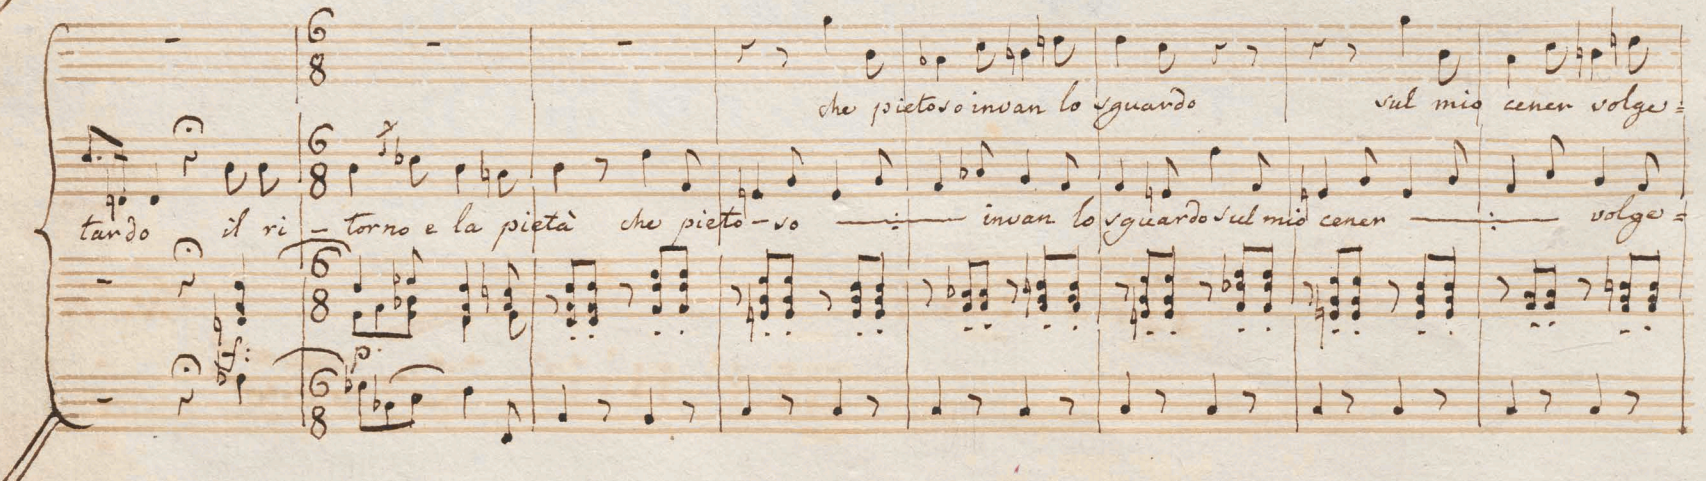 che pietoso invan lo sguardo sul mio cener volge=
tardo il ri - torno e la pietà che pieto - so invan lo sguardo sul mio cener volge=
p.